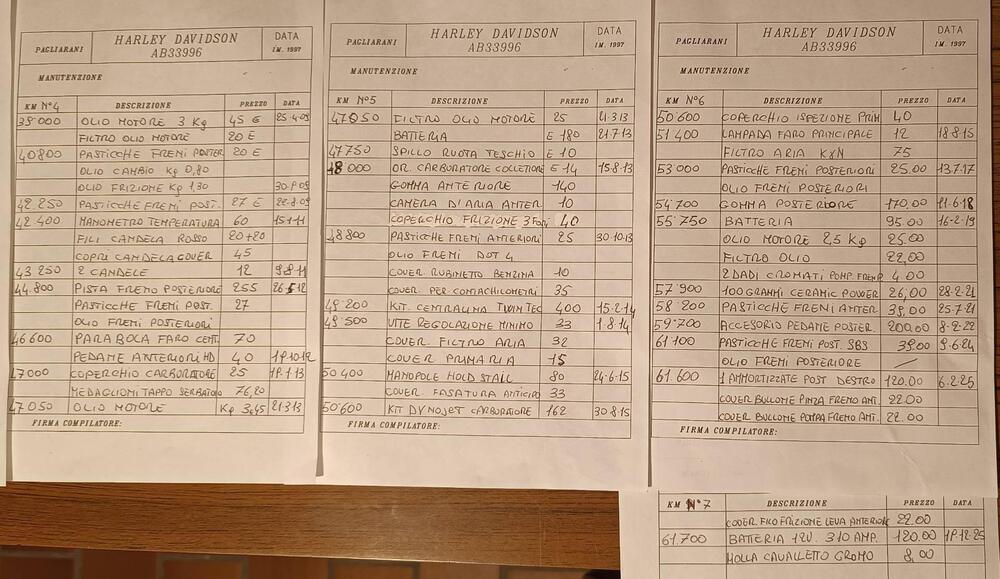 PAGLIARANI HARLEY DAVIDSON AB33996 DATA IM. 1997
MANUTENZIONE
KM N°4 DESCRIZIONE PREZZO DATA
39000 OLIO MOTORE 3 Kg 45 € 25.4.09
FILTRO OLIO MOTORE 20 E
40800 PASTICCHE FREMI POSTER 20 E
OLIO CAMBIO Kg 0,80
OLIO FRIZIONE Kg 1,30
42250 PASTICCHE FREMI POST. 27 E
42400 MANOMETRO TEMPERATURA 60 15.1.11
FILI CANDELA ROSSO 20+20
COPRI CANDELA COVER 45
43250 2 CANDELE 12 9.8.11
44.800 PISTA FREMO POSTERIORE 255
PASTICCHE FREMI POST. 27
OLIO FREMI POSTERIORI
46600 PARABOLA FARO CENT. 70
PEDAME ANTERIORI HD 40 19.10.12
47000 COPERCHIO CARBURATORE 25 19.1.13
MEDAGLIOMI TAPPO SERBATOIO 76,20
47050 OLIO MOTORE Kg 3,45 21.3.13
FIRMA COMPILATORE:
PAGLIARANI HARLEY DAVIDSON AB33996 DATA IM. 1997
MANUTENZIONE
KM N°5 DESCRIZIONE PREZZO DATA
47050 FILTRO OLIO MOTORE 25 21.3.13
BATTERIA E 180 21.7.13
47750 SPILLO RUOTA TESCHIO E 10
48000 OR. CARBURATORE COLLETTORE E 14 15.8.13
GOMMA ANTERIORE 140
CAMERA D'ARIA ANTER 10
COPERCHIO FRIZIONE 3 FORI 40
48800 PASTICCHE FREMI ANTERIORI 25 30.10.13
OLIO FREMI DOT 4
COVER RUBINETTO BENZINA 10
COVER PER CONTACHILOMETRI 35
49200 KIT. CENTRALINA TWIN TEC 400 15.2.14
49.500 VITE REGOLAZIONE MINIMO 33 1.8.14
COVER FILTRO ARIA 32
COVER PRIMARIA 15
50400 MANOPOLE HOLD STALL 80 24.6.15
COVER FASATURA ANTICIPO 33
50.600 KIT DYNOJET CARBURATORE 162 30.8.15
FIRMA COMPILATORE:
PAGLIARANI HARLEY DAVIDSON AB33996 DATA IM. 1997
MANUTENZIONE
KM N°6 DESCRIZIONE PREZZO DATA
50600 COPERCHIO ISPEZIONE PRIM 40
51400 LAMPADA FARO PRINCIPALE 12 18.8.15
FILTRO ARIA KXN 75
53000 PASTICCHE FREMI POSTERIORI 25.00 13.7.17
OLIO FREMI POSTERIORI
54700 GOMMA POSTERIORE 170,00 11.6.18
55750 BATTERIA 95.00 16.2.19
OLIO MOTORE 2,5 Kg 25.00
FILTRO OLIO 22,00
2 DADI CROMATI POMP. FREMO 4.00
57900 100 GRAMMI CERAMIC POWER 26,00 28.2.21
58200 PASTICCHE FREMI ANTER 39,00 25.7.21
59700 ACCESORIO PEDAME POSTER. 200.00 8.2.22
61100 PASTICCHE FREMI POST. SBS 39.00 9.6.24
OLIO FREMI POSTERIORE —
61.600 1 AMMORTIZZATE POST DESTRO 120.00 6.2.25
COVER BULLOME PINZA FREMO ANT. 22.00
COVER BULLOME POMPA FREMO ANT. 22.00
FIRMA COMPILATORE:
KM N°7 DESCRIZIONE PREZZO DATA
COVER FILO FRIZIONE LEVA ANTERIORE 22.00
61.700 BATTERIA 12V. 310 AMP. 120.00 19.12.25
MOLLA CAVALLETTO CROMO 8,00